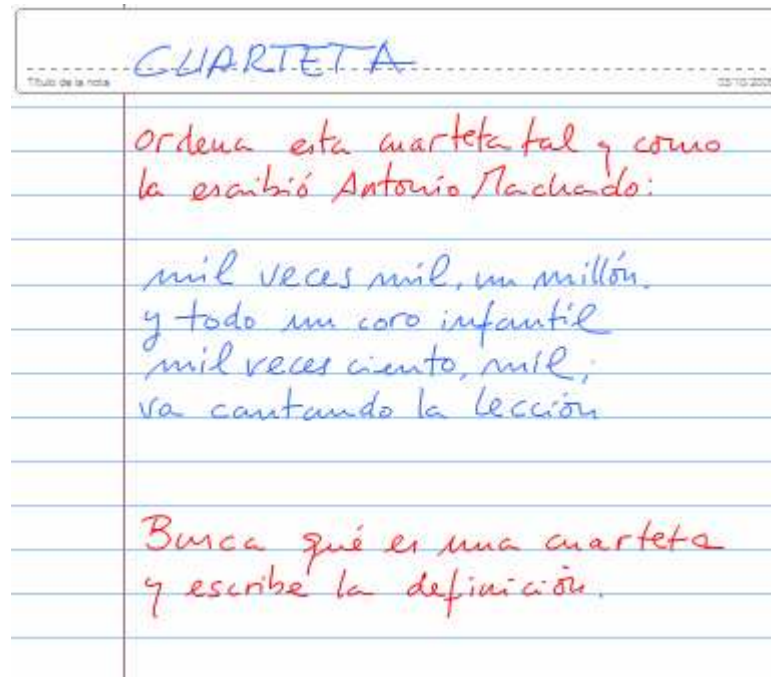 CUARTETA
Título de la nota
ordena esta cuarteta tal y como
la escribió Antonio Machado:
mil veces mil, un millón.
y todo un coro infantil
mil veces ciento, mil;
va cantando la lección
Busca qué es una cuarteta
y escribe la definición.